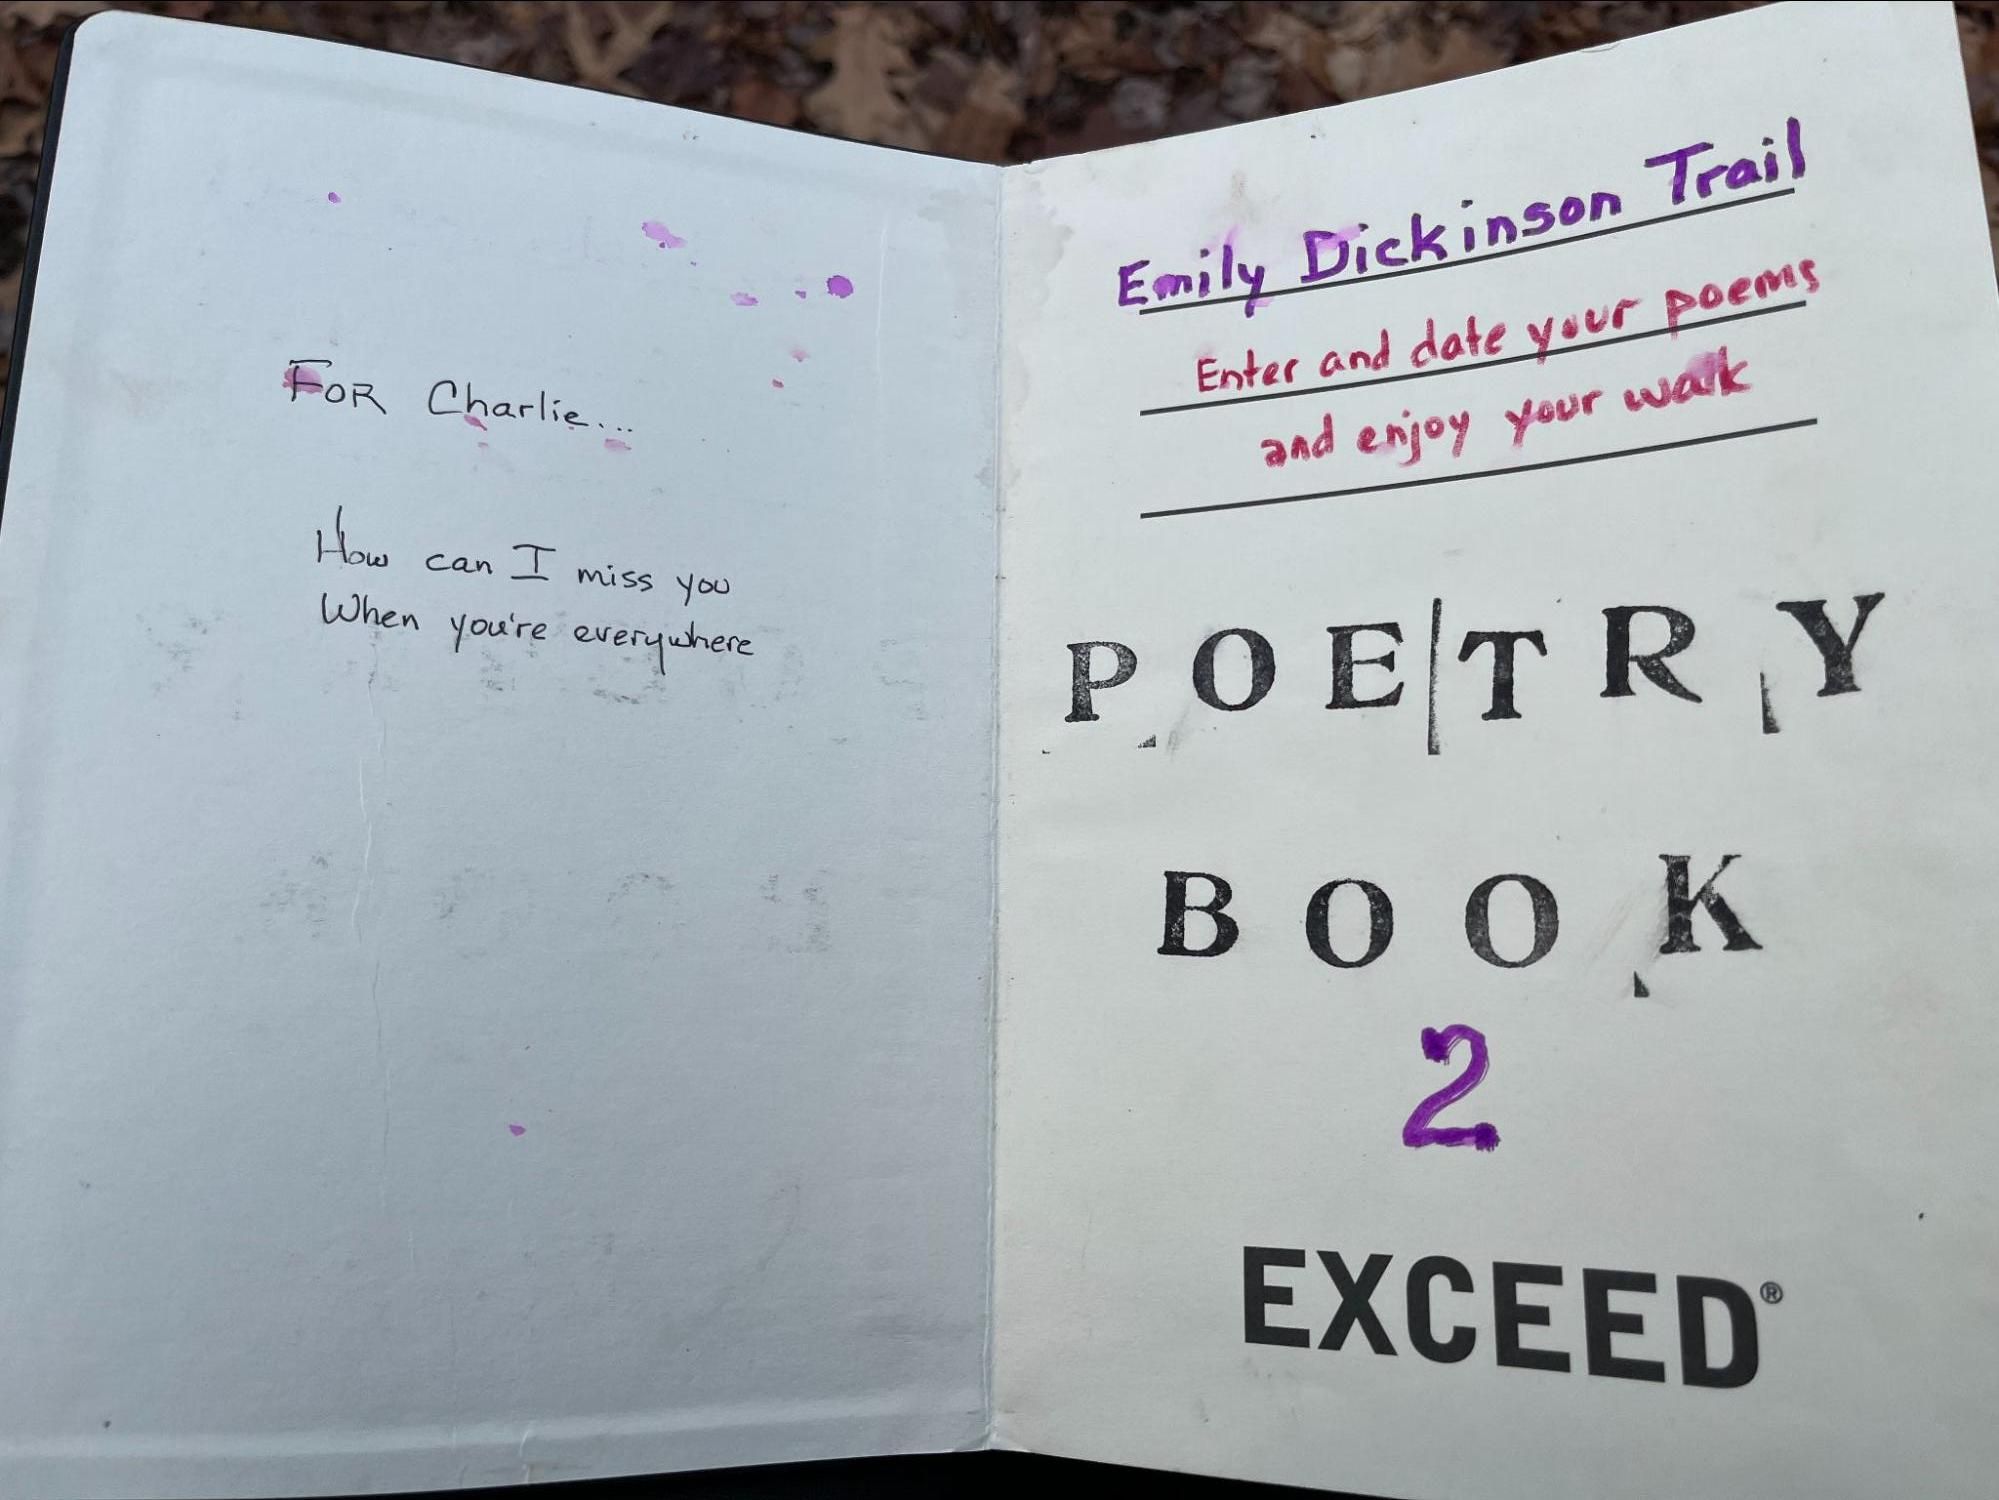 For Charlie...
How can I miss you
When you're everywhere
Emily Dickinson Trail
Enter and date your poems
and enjoy your walk
POETRY
BOOK
2
EXCEED®